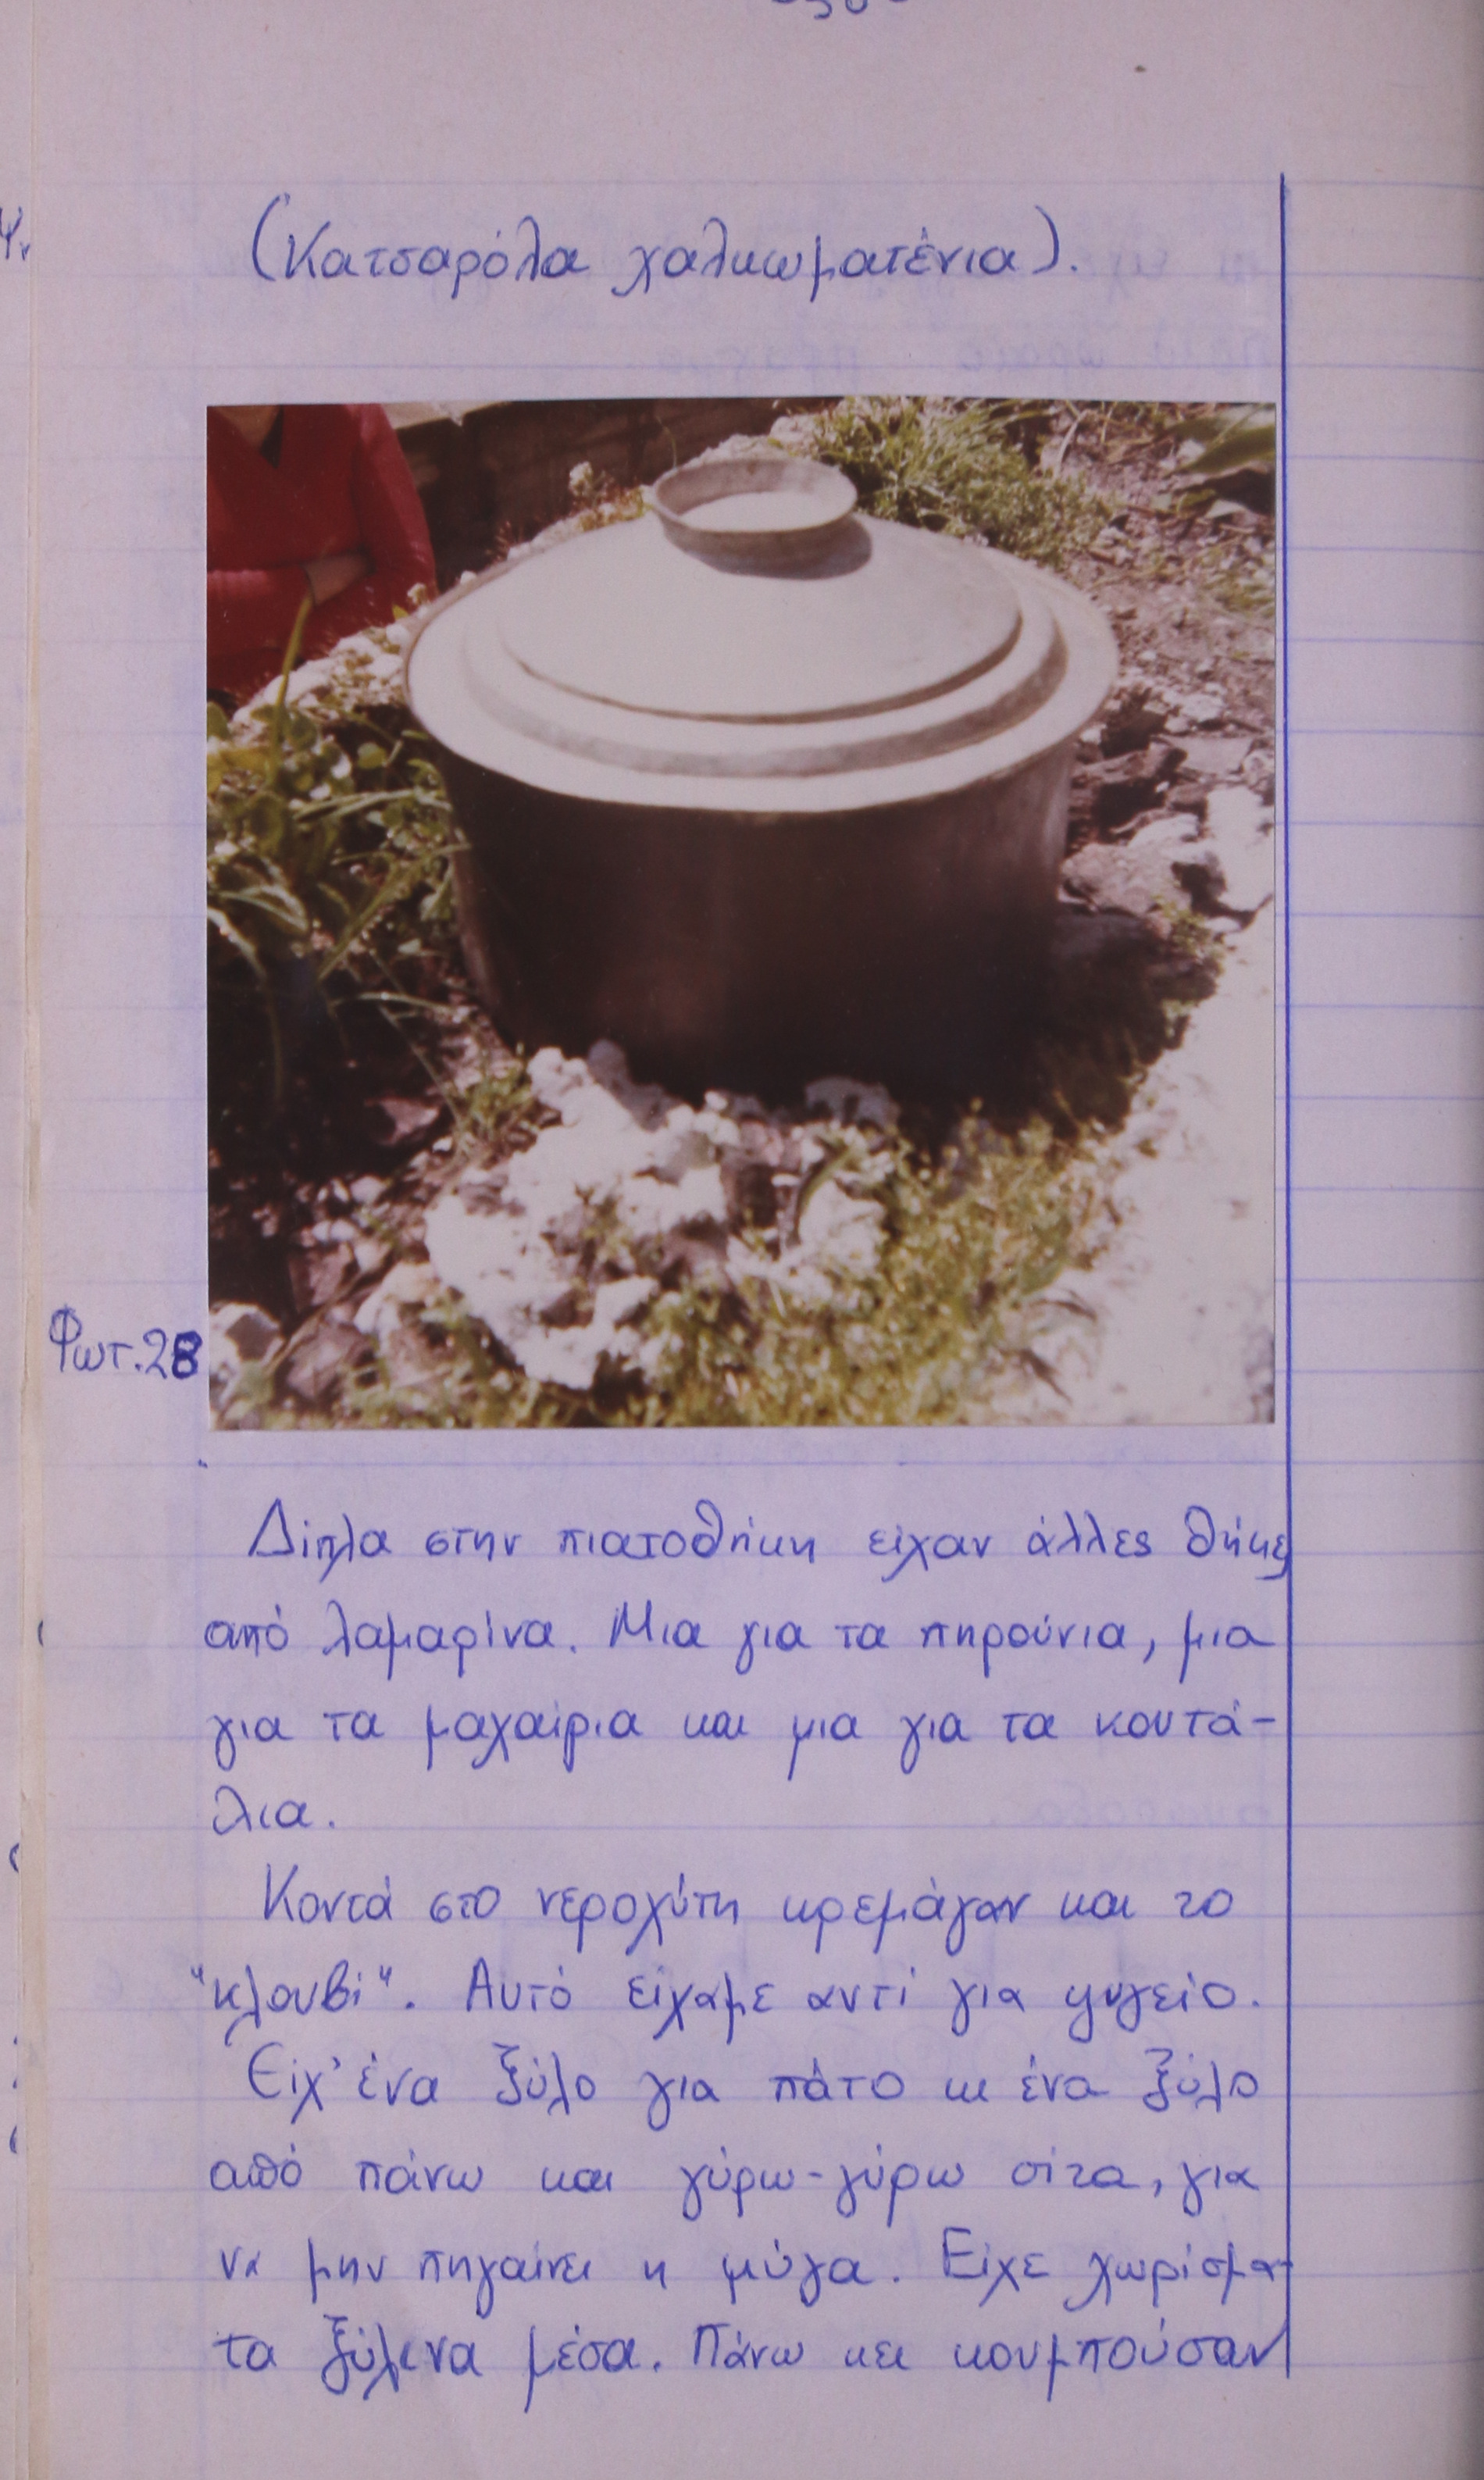 (Κατσαρόλα χαλκωματένια).
Φωτ. 28
Δίπλα στην πιατοθήκη είχαν άλλες θήκες
από λαμαρίνα. Μια για τα πηρούνια, μια
για τα μαχαίρια και μια για τα κουτά-
λια.
Κοντά στο νεροχύτη κρεμάγαν και το
"κλουβί". Αυτό είχαμε αντί για ψυγείο.
Είχ' ένα ξύλο για πάτο κι ένα ξύλο
από πάνω και γύρω-γύρω σίτα, για
να μην πηγαίνει η μύγα. Είχε χωρίσμα-
τα ξύλινα μέσα. Πάνω κει κουμπούσαν